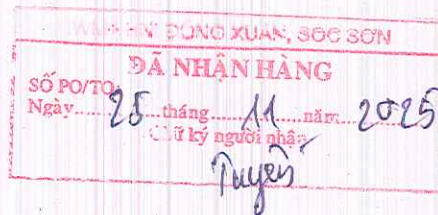 ĐÔNG XUÂN, SÓC SƠN
ĐÃ NHẬN HÀNG
SỐ PO/TO
Ngày......25...tháng......11......năm...2025
ữ ký người nhận
Tuyên